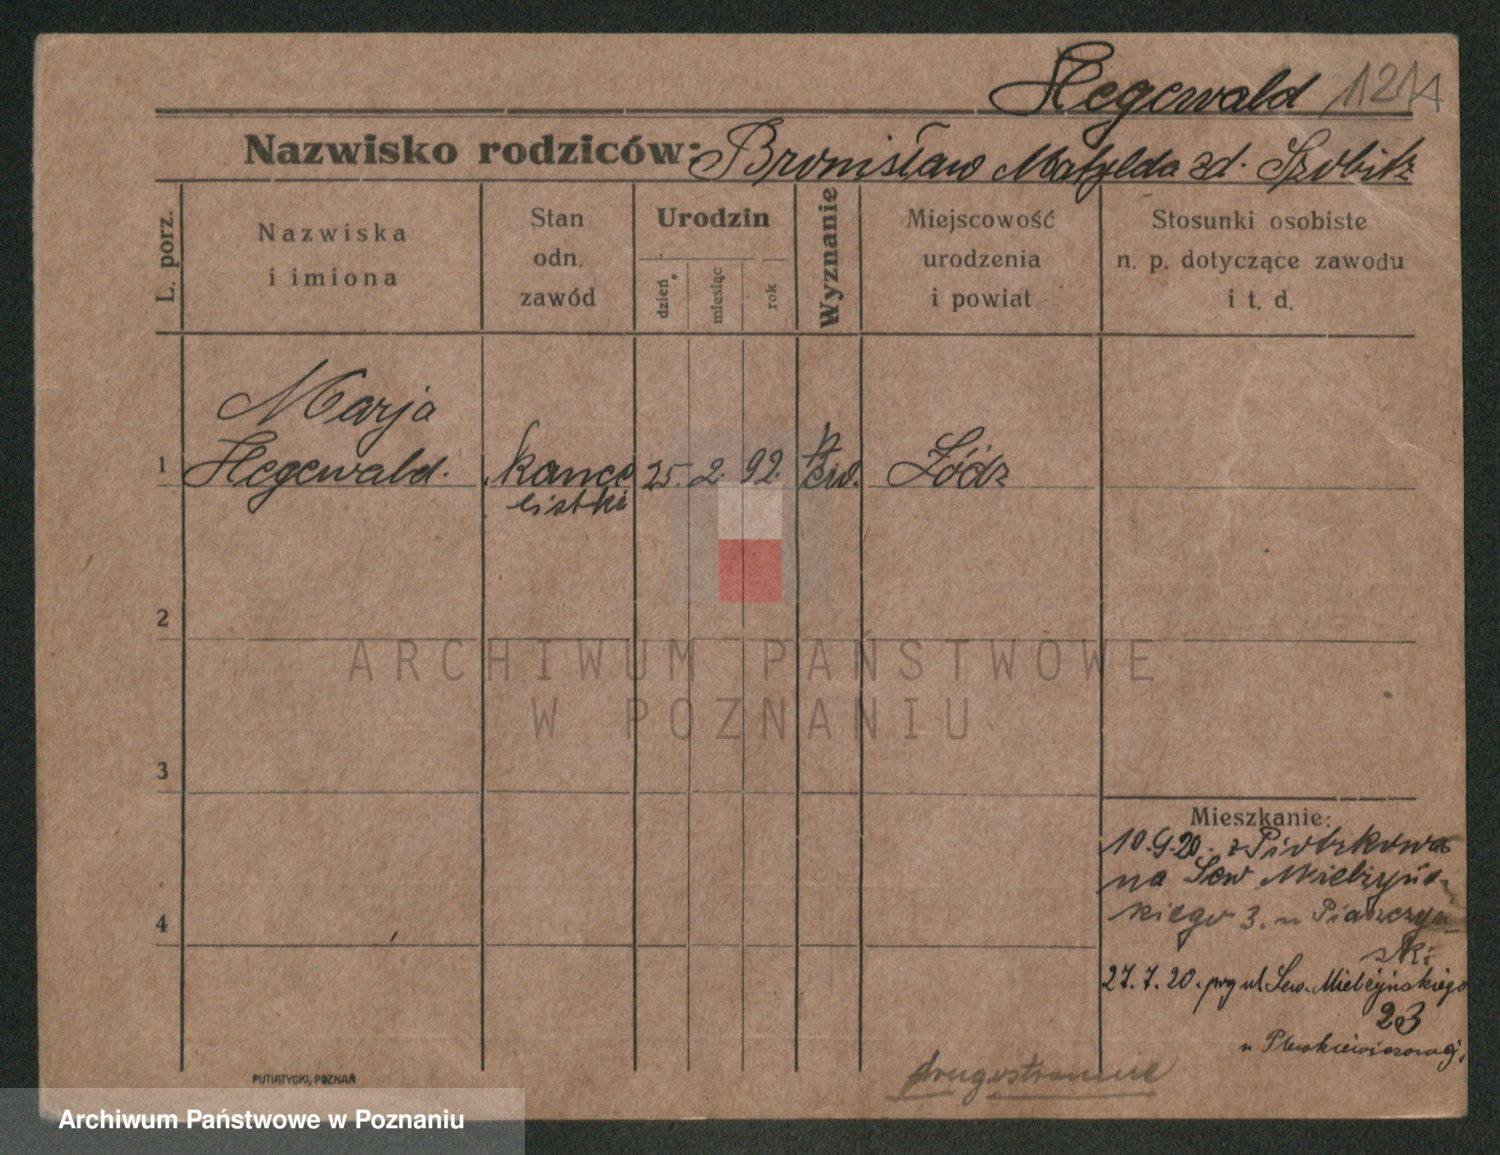 Hegewald 121A
Nazwisko rodziców: Bronisław Matylda zd. Szobitz
L. porz.
Nazwiska
i imiona
Stan
odn.
zawód
Urodzin
dzień
miesiąc
rok
Wyznanie
Miejscowość
urodzenia
i powiat
Stosunki osobiste
n. p. dotyczące zawodu
i t. d.
Marja
1 Hegewald. kance 25. 2. 92. Łódz
listki
2
ARCHIWUM PAŃSTWOWE
W POZNANIU
3
Mieszkanie:
10.9.20. z Piotrkowa
na Sew Mielżyńs-
4 kiego 3. u Piaszczyń-
ski
27.7.20. prg ul. Sew. Mielżyńskiego
23
u
drugostronnie
PUTIATYCKI, POZNAŃ
Archiwum Państwowe w Poznaniu